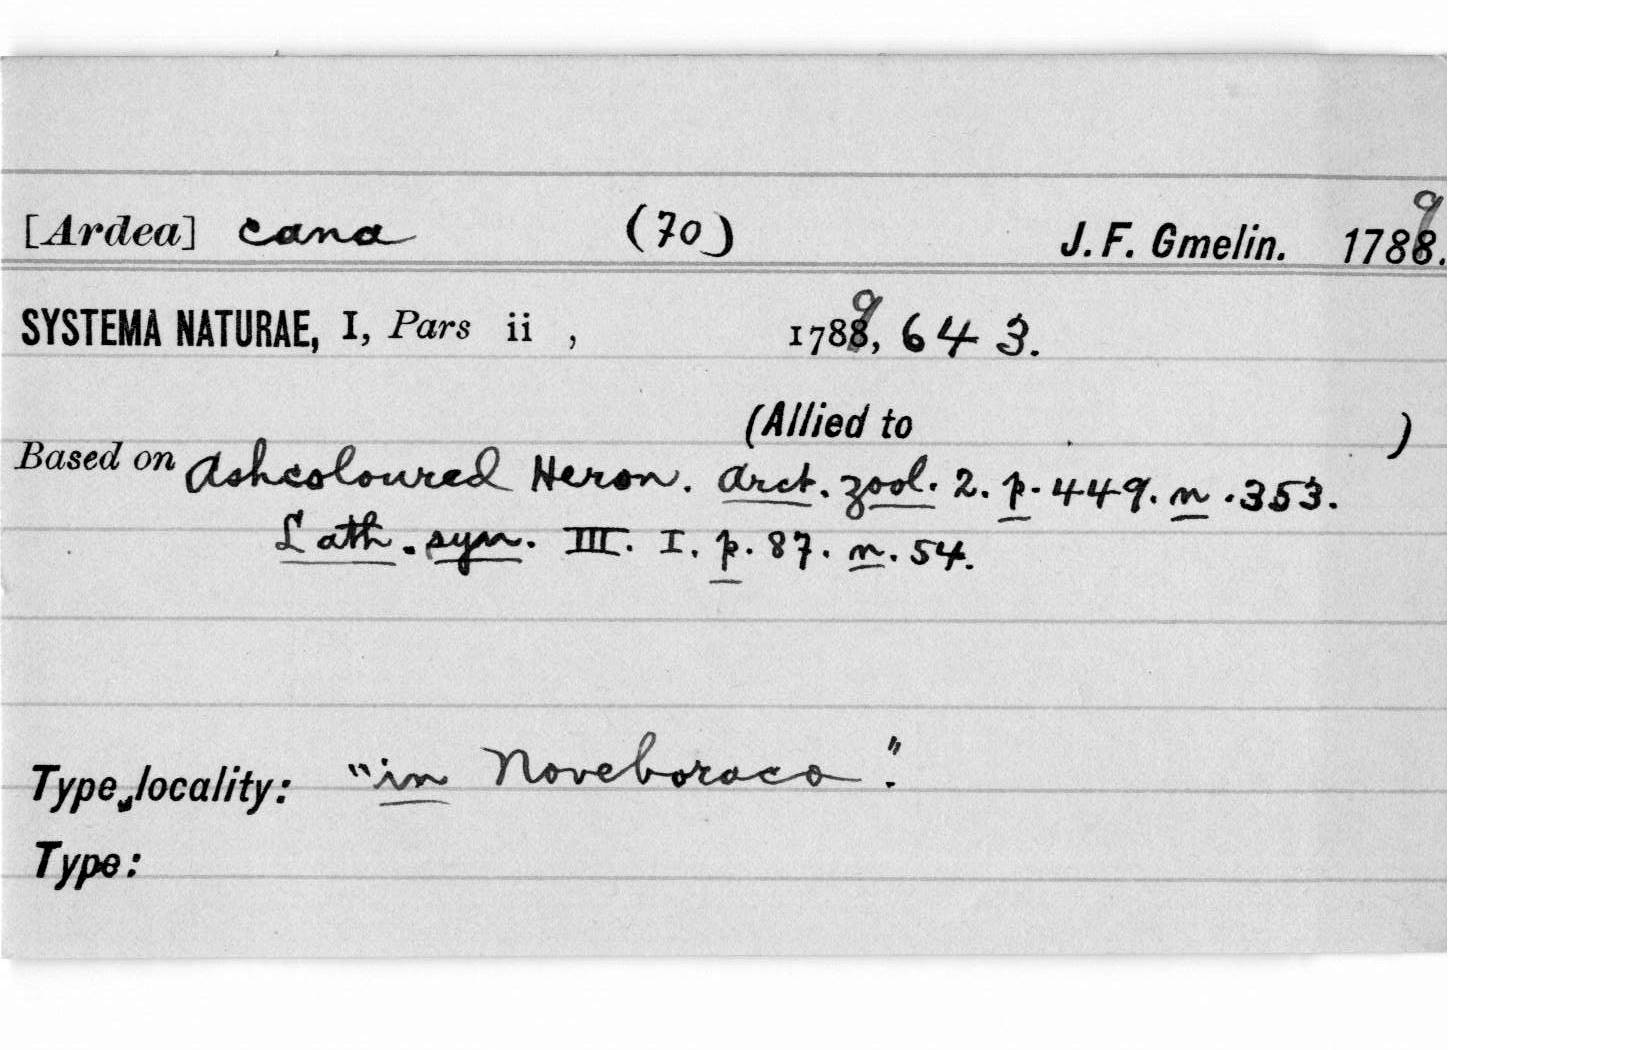 [Ardea] cana (70) J. F. Gmelin. 1789.
SYSTEMA NATURAE, I, Pars ii , 1789, 643.
(Allied to )
Based on Ashcoloured Heron. Arct. zool. 2. p. 449. n. 353.
Lath. syn. III. I. p. 87. n. 54.
Type locality: "in Noveboraco".
Type: